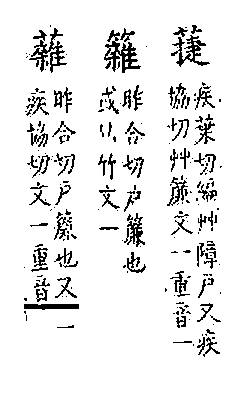 萐
疾葉切編艸障户又疾
協切艸簾文一重音一
䉶
昨合切户簾也
或从竹文一
雥
昨合切户簾也又
疾協切文一重音一